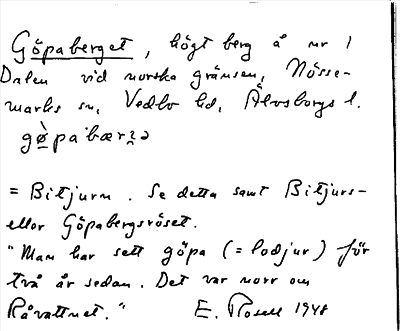 Göpaberget, högt berg å nr 1
Dalen vid norska gränsen, Nösse-
marks sn, Vedbo hd, Älvsborgs l.
gø̀pabær2ə
= Bitjurn. Se detta samt Bitjurs-
eller Göpabergsröset.
"Man har sett göpa (= lodjur) för
två år sedan. Det var norr om
Råvattnet." E. Rosell 1948